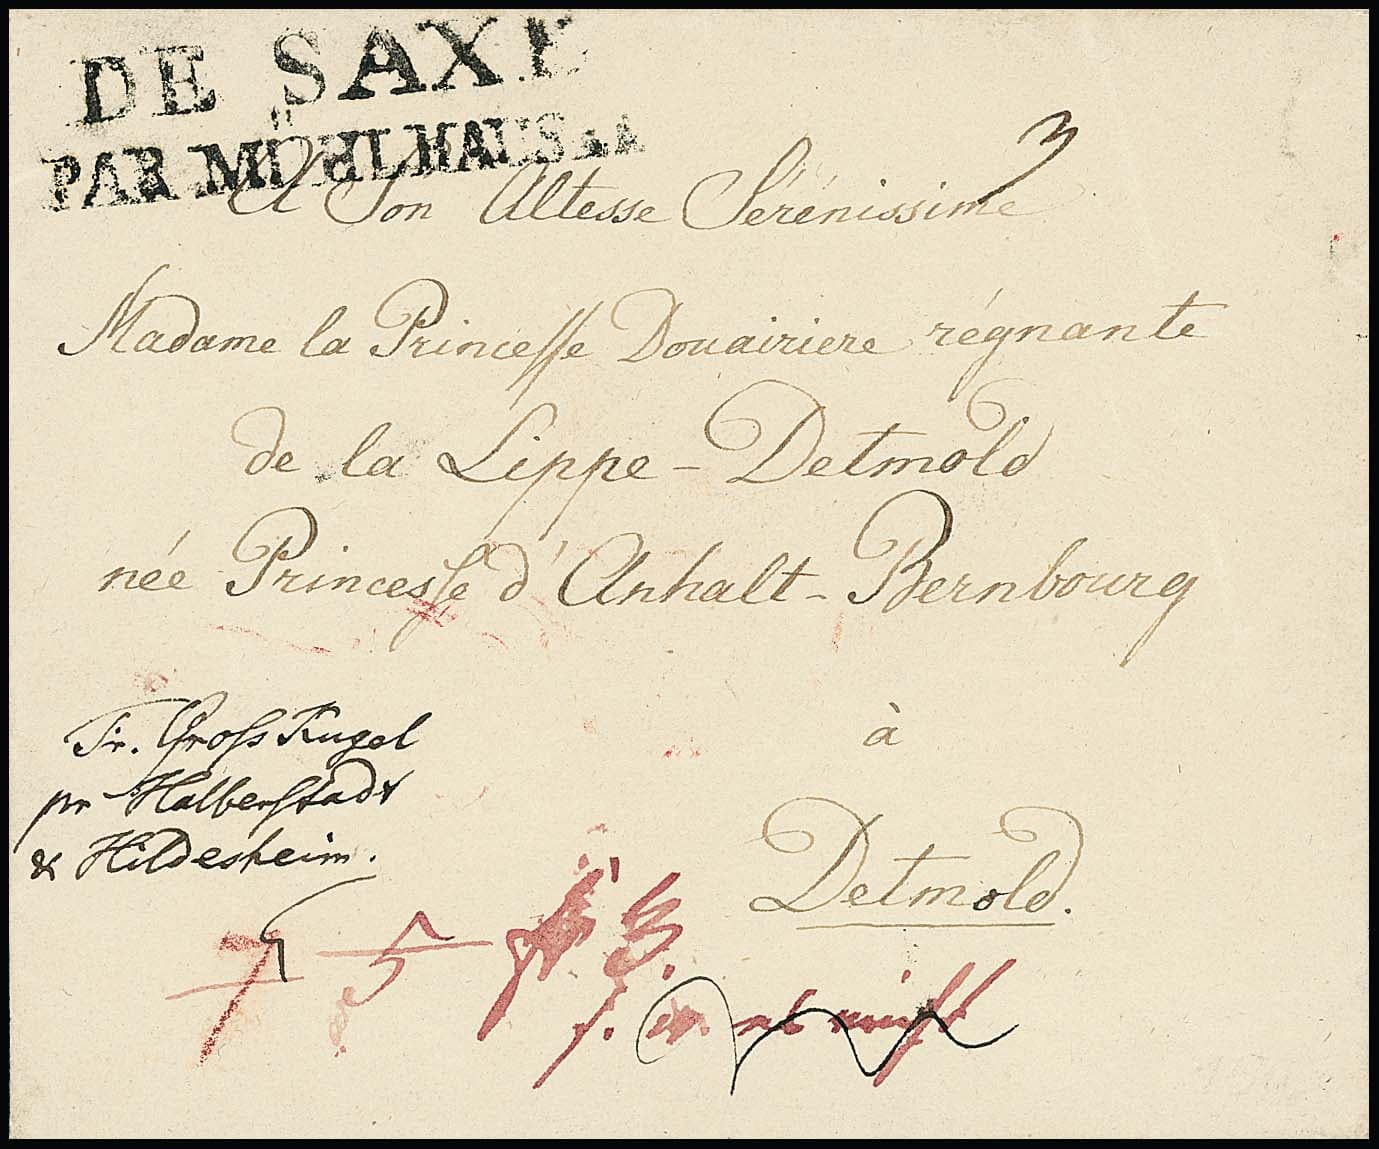 DE SAXE
PAR MÜHLHAUSEN
3
A Son Altesse Sérénissime
Madame la Princesse Douairiere régnante
de la Lippe-Detmold
née Princesse d'Anhalt-Bernbourg
à
Detmold.
Fr. Gross Kugel
pr Halberstadt
& Hildesheim.